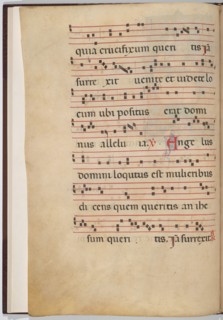 quia crucifixum queri tis ia
surre xit venite et videte lo
cum ubi positus erat domi
nus allelu ia. Ange lus
domini locutus est mulieribus
di cens quem queritis an ihe
sum queri tis. Ia surrexit